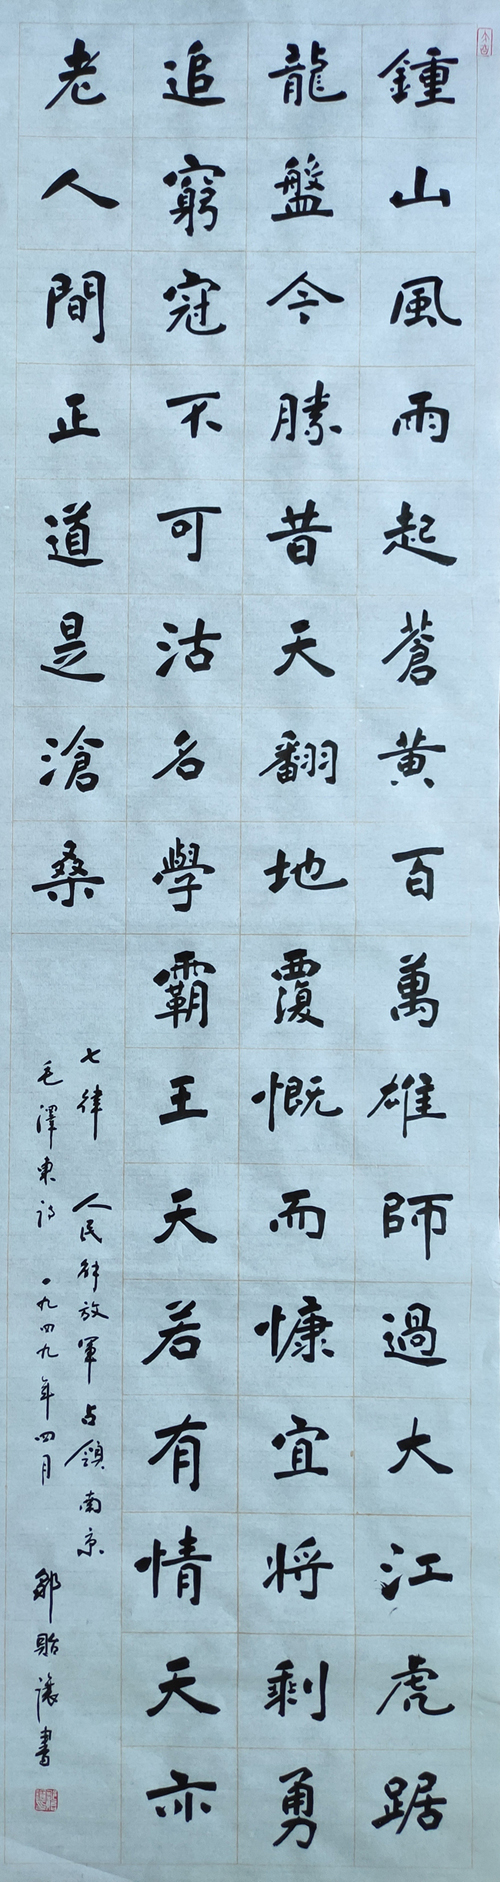 鍾山風雨起蒼黃百萬雄師過大江虎踞
龍盤今勝昔天翻地覆慨而慷宜将剩勇
追窮寇不可沽名學霸王天若有情天亦
老人間正道是滄桑
七律 人民解放軍占領南京
毛澤東詩 一九四九年四月 鄒貽讓書